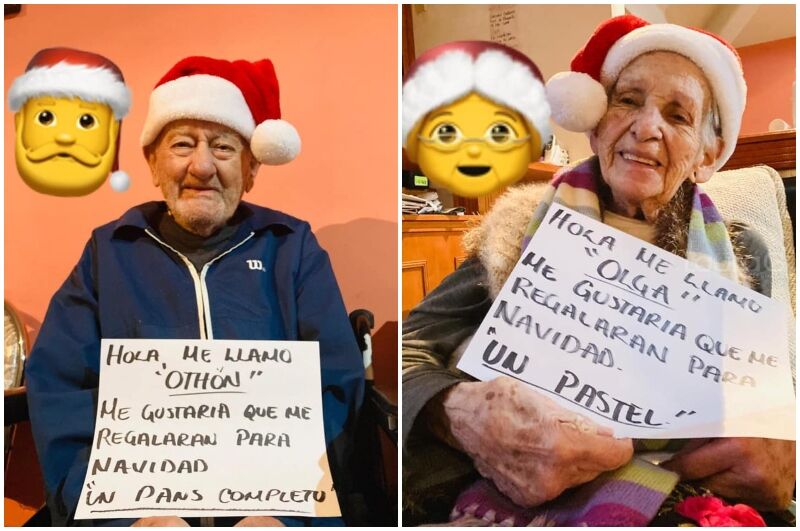 HOLA, ME LLAMO
"OTHÓN"
ME GUSTARIA QUE ME
REGALARAN PARA
NAVIDAD
"UN PANS COMPLETO"
HOLA ME LLAMO
"OLGA"
ME GUSTARIA QUE ME
REGALARAN PARA
NAVIDAD.
"UN PASTEL"